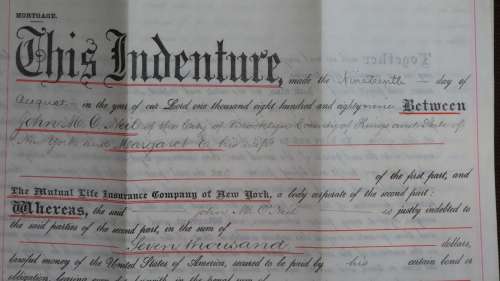 MORTGAGE.
This Indenture, made the Nineteenth day of
August in the year of our Lord one thousand eight hundred and eighty nine Between
John M. O'Neil of the City of Brooklyn County of Kings and State of
New York and Margaret his wife
of the first part, and
The Mutual Life Insurance Company of New York, a body corporate of the second part:
Whereas, the said John M. O'Neil is justly indebted to
the said parties of the second part, in the sum of
Seven thousand dollars,
lawful money of the United States of America, secured to be paid by his certain bond or
obligation, bearing even date herewith, in the penal sum of